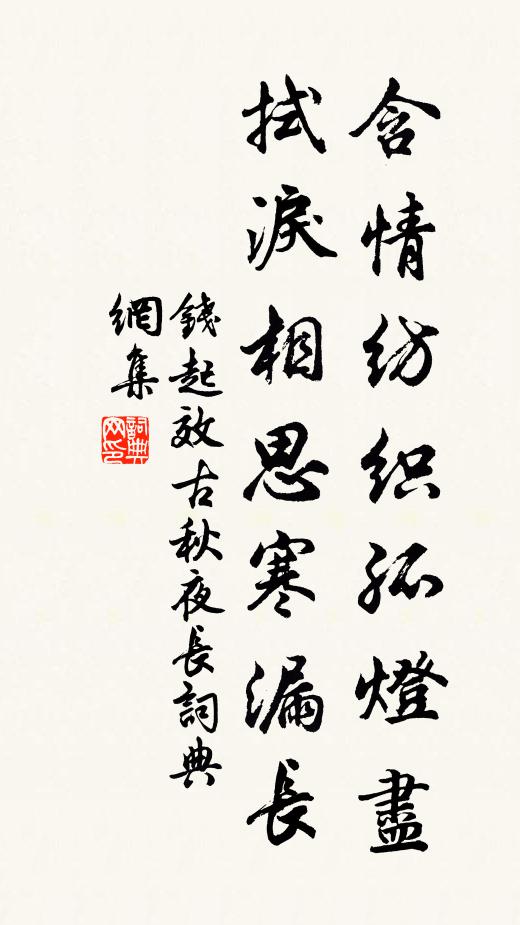 含情纺织孤燈盡
拭淚相思寒漏長
錢起效古秋夜長詞典
網集
詞典网印